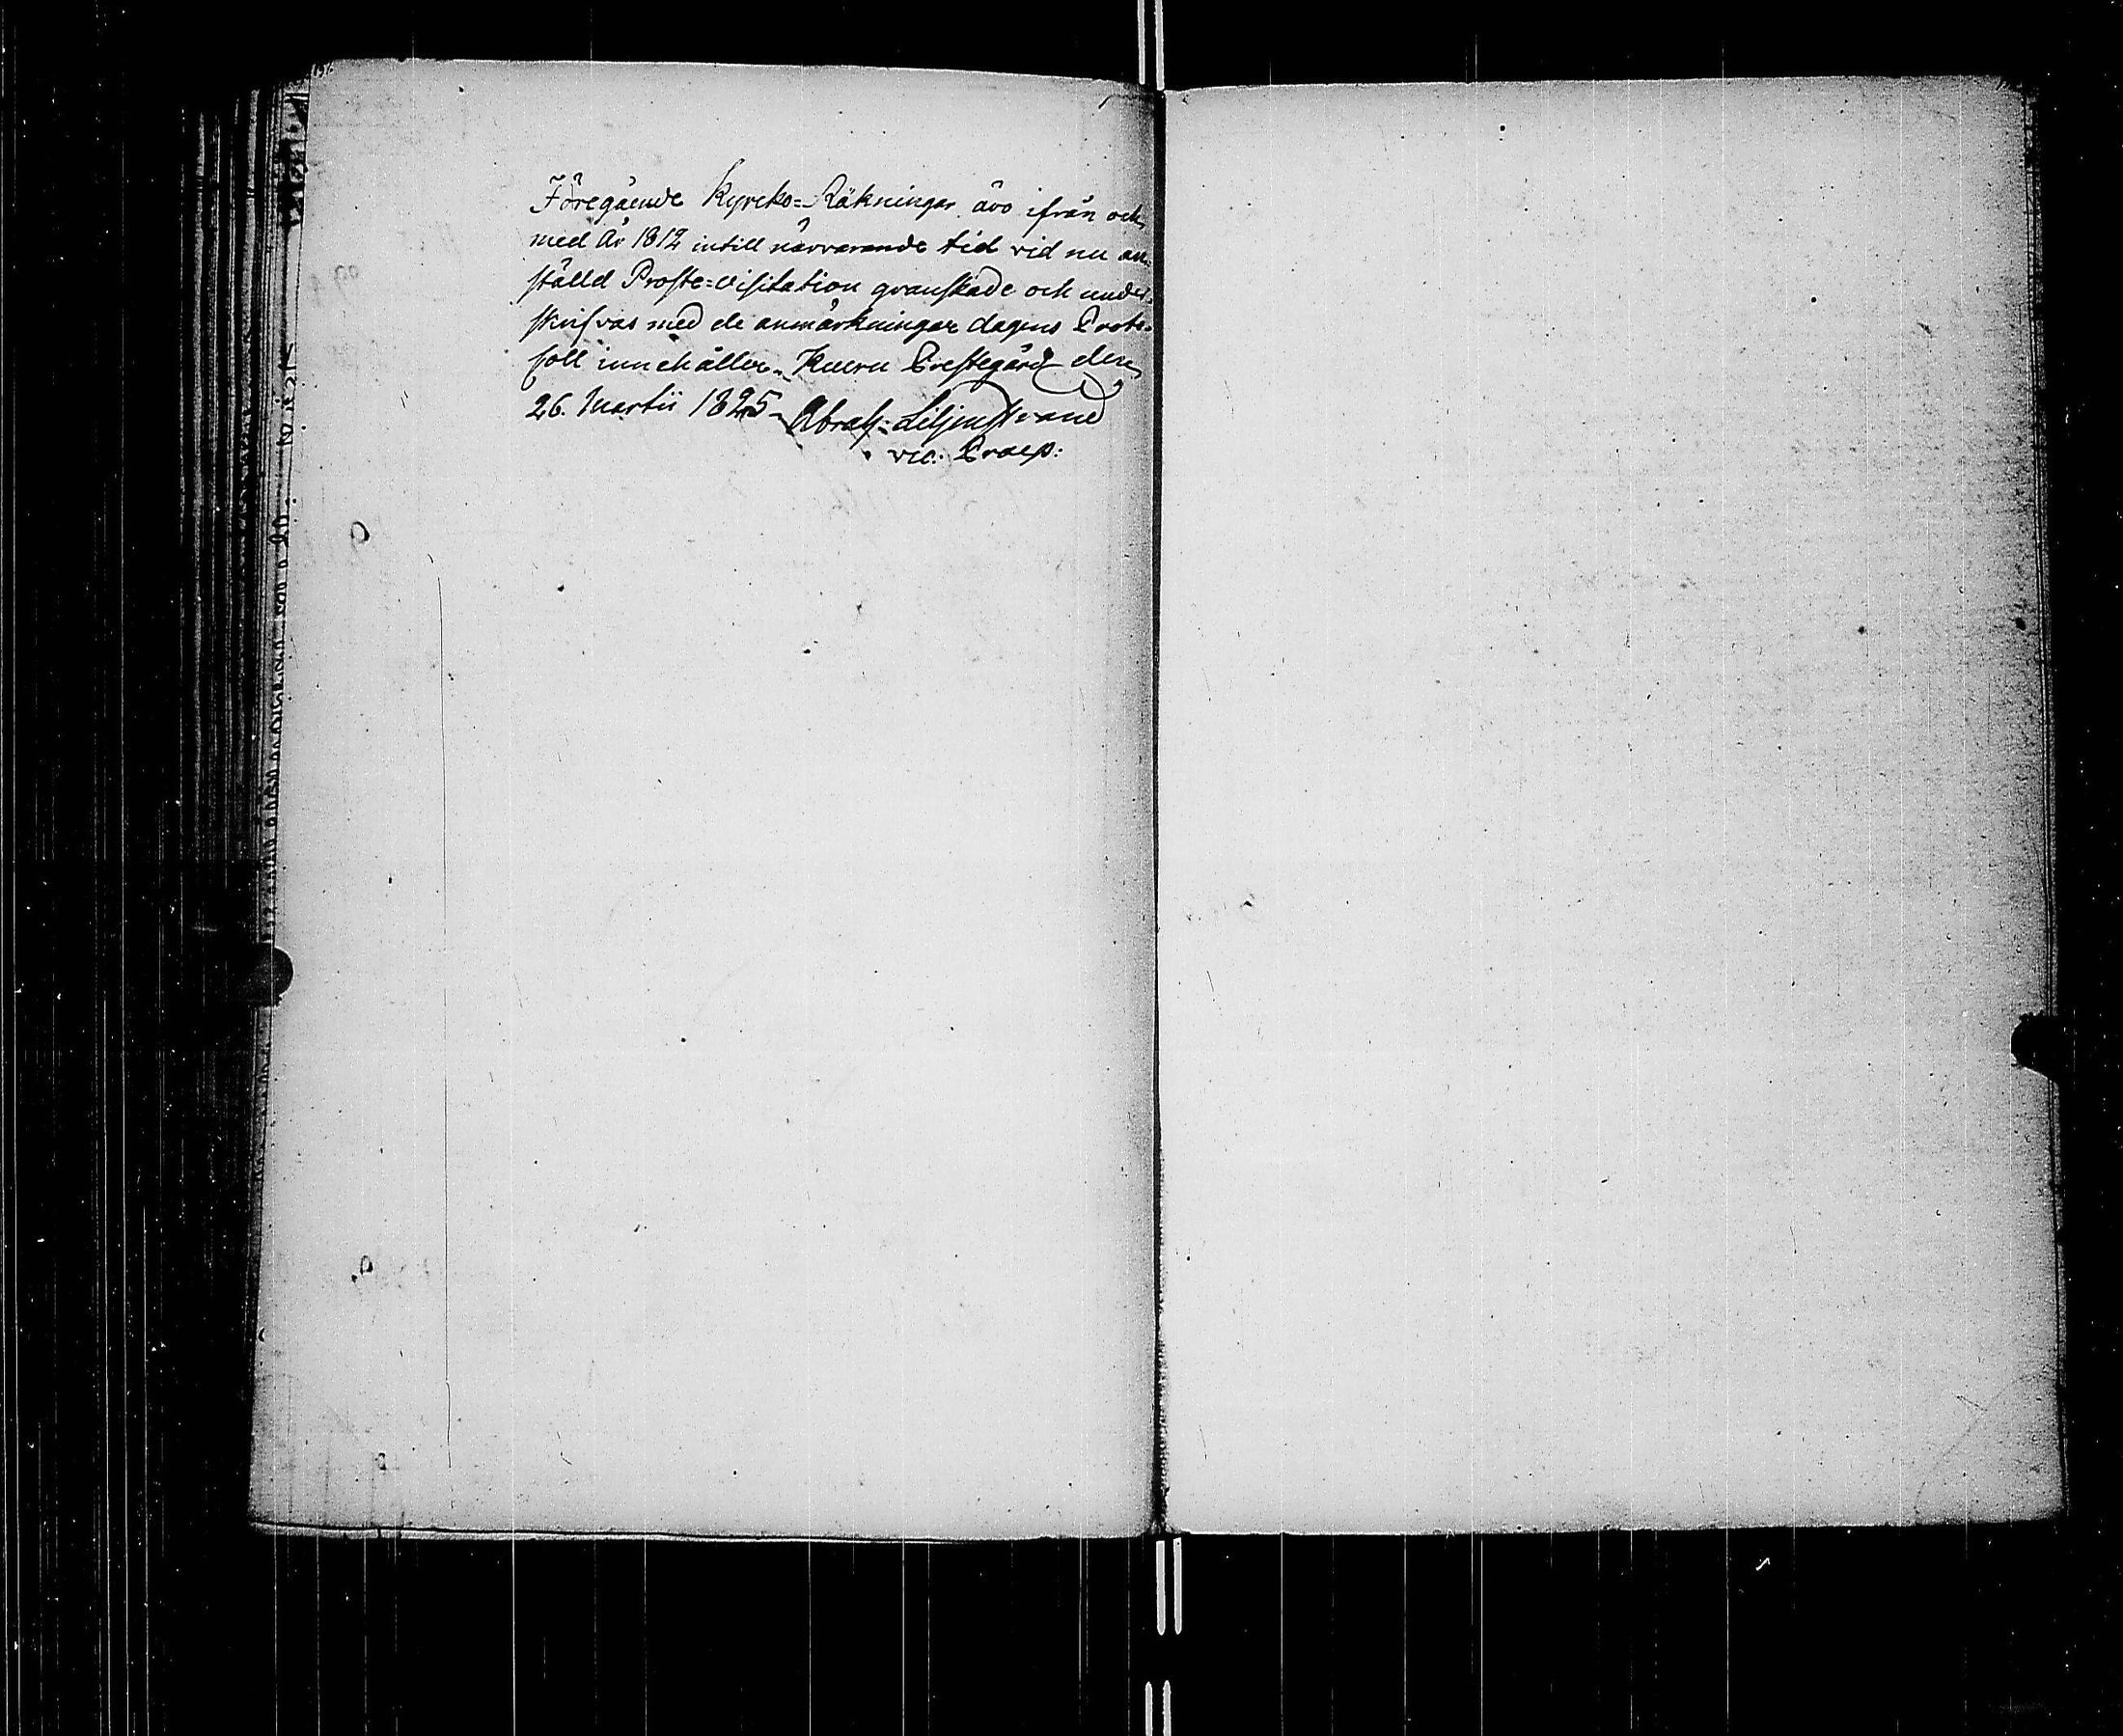 Föregående Kyrcko=Räkningar äro ifrån och
med År 1812 intill närvarande tid vid nu an=
ställd Proste=Visitation granskade och under=
skrifvas med de anmärkningar dagens Proto=
koll innehåller. Kueru Prestegård den
26. Martii 1825. Abrah: Liljenstrand
vic: Praep: